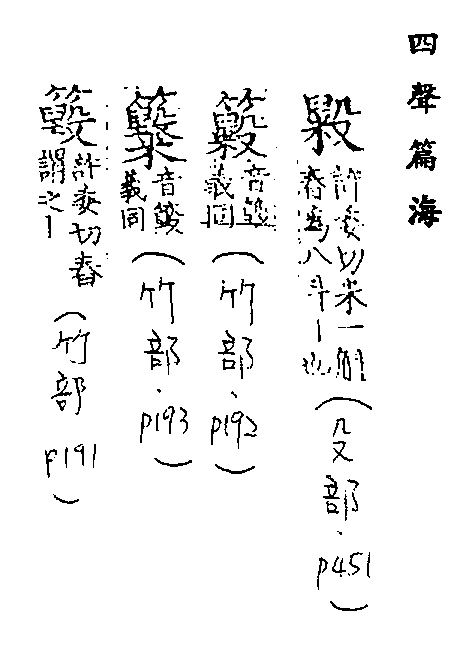 四聲篇海
許委切米一斛
舂為八斗丨也(殳部、p451)
音
義同(竹部、p192)
音
義同(竹部、p193)
許委切舂
謂之丨(竹部 p191)